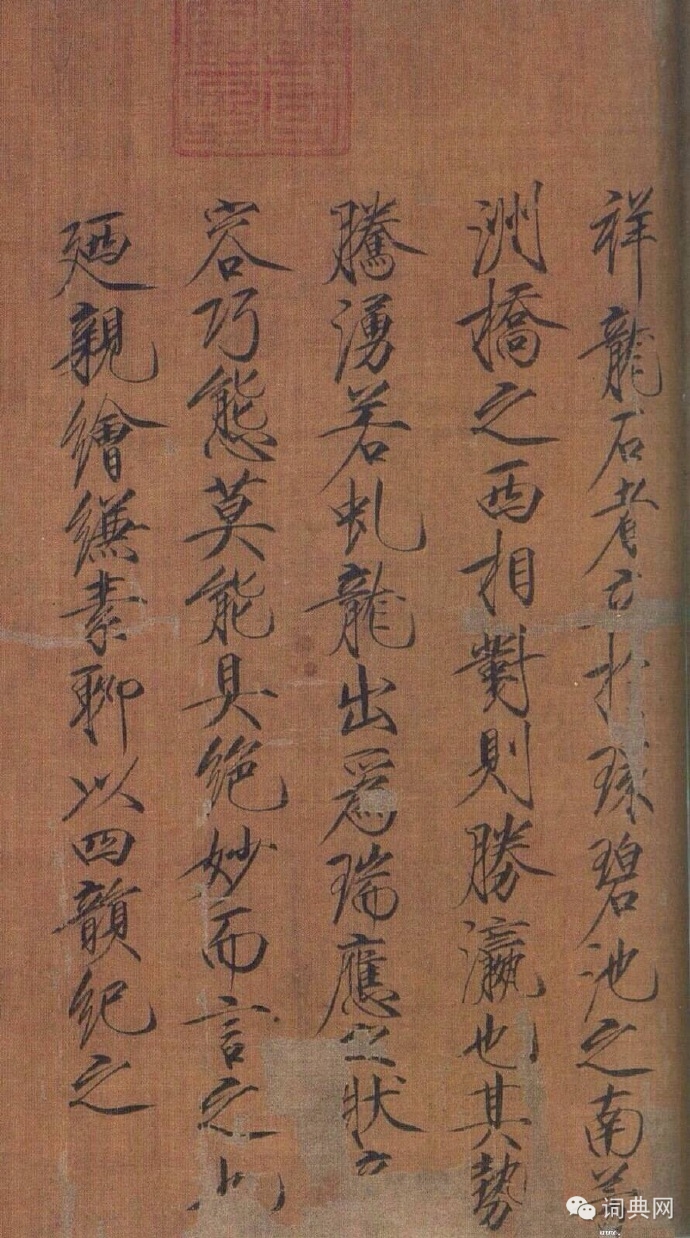 祥龍石者立於環碧池之南芳
洲橋之西相對則勝瀛也其勢
騰湧若虬龍出爲瑞應之狀奇
容巧態莫能具絶妙而言之也
廼親繪縑素聊以四韻紀之
词典网